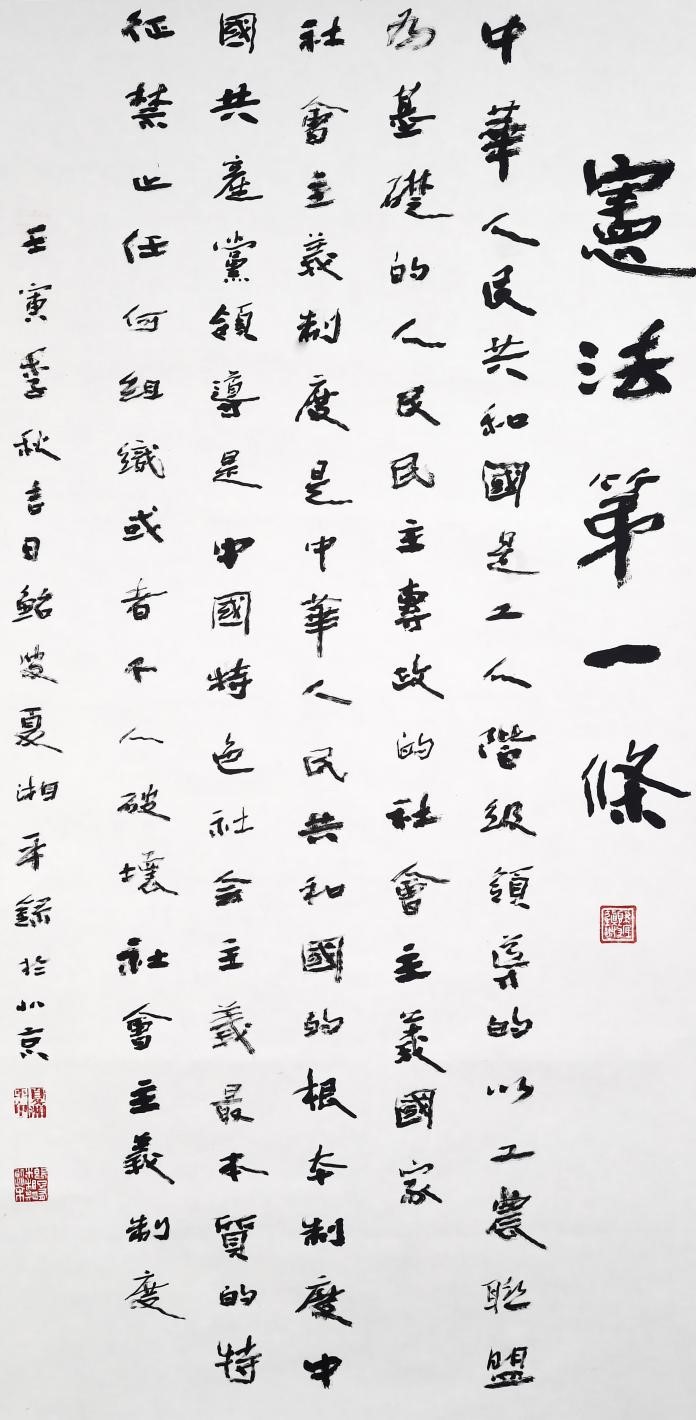 憲法第一條
中華人民共和國是工人階級領导的以工農聯盟
為基礎的人民民主專政的社會主義國家
社會主義制度是中華人民共和國的根本制度中
國共產黨領導是中國特色社会主義最本質的特
征禁止任何組織或者个人破壞社會主義制度
壬寅季秋吉日鮐叟夏湘平錄於北京